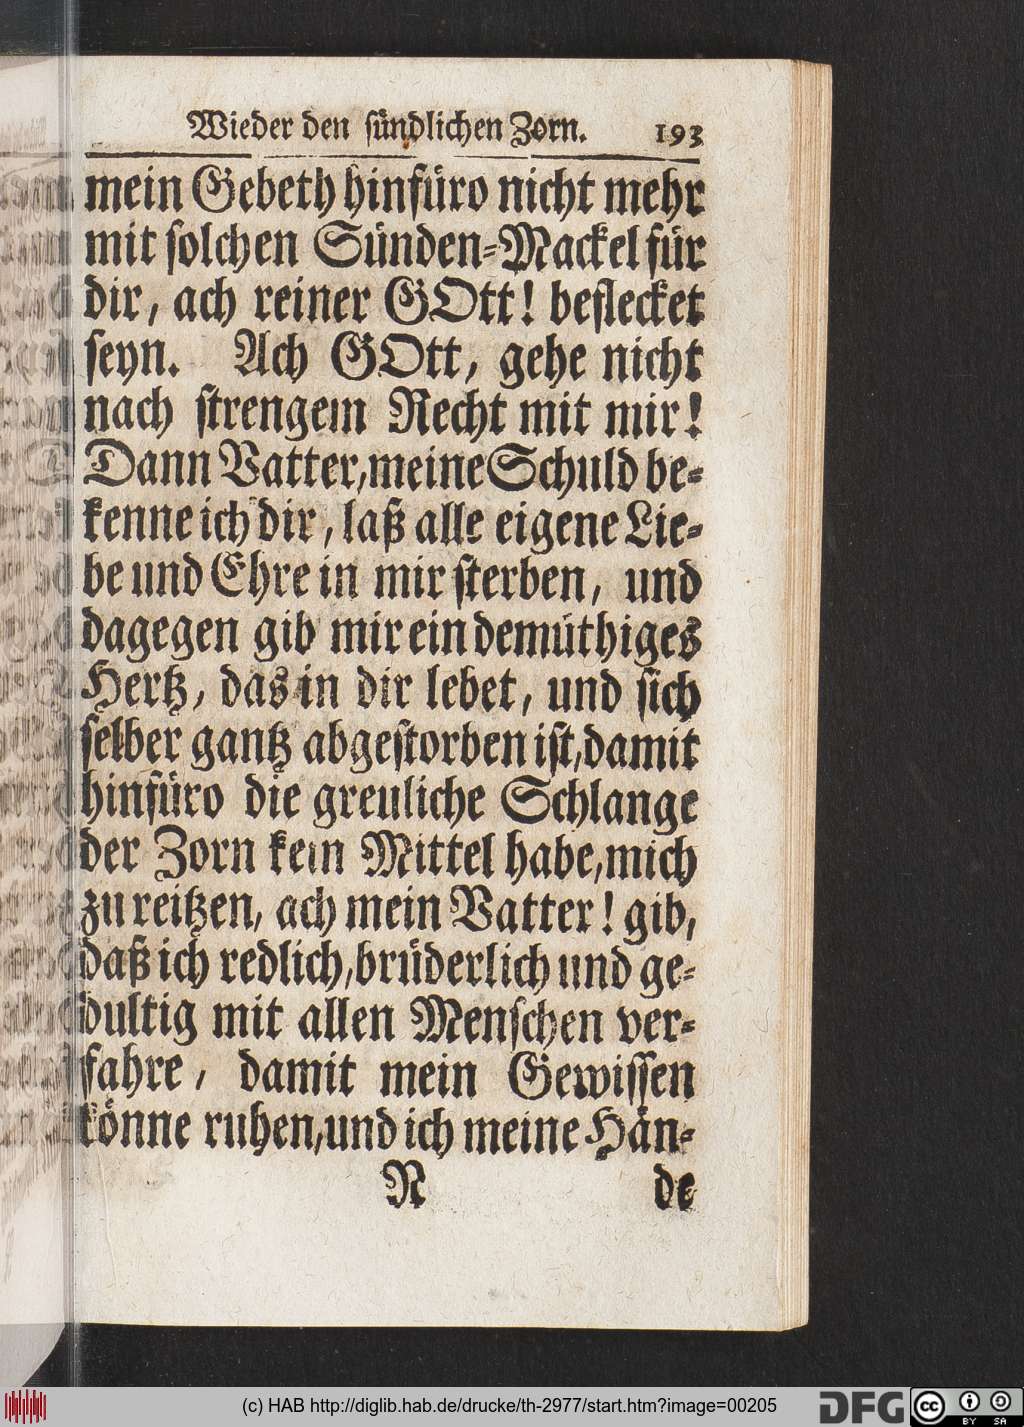 Wieder den sündlichen Zorn. 193
mein Gebeth hinfüro nicht mehr
mit solchen Sünden-Mackel für
dir, ach reiner GOtt! beflecket
seyn. Ach GOtt, gehe nicht
nach strengem Recht mit mir!
Dann Vatter, meine Schuld be-
kenne ich dir, laß alle eigene Lie-
be und Ehre in mir sterben, und
dagegen gib mir ein demüthiges
Hertz, das in dir lebet, und sich
selber gantz abgestorben ist, damit
hinfüro die greuliche Schlange
der Zorn kein Mittel habe, mich
zu reitzen, ach mein Vatter! gib,
daß ich redlich, brüderlich und ge-
dultig mit allen Menschen ver-
fahre, damit mein Gewissen
könne ruhen, und ich meine Hän-
N de
(c) HAB http://diglib.hab.de/drucke/th-2977/start.htm?image=00205
DFG
cc BY SA